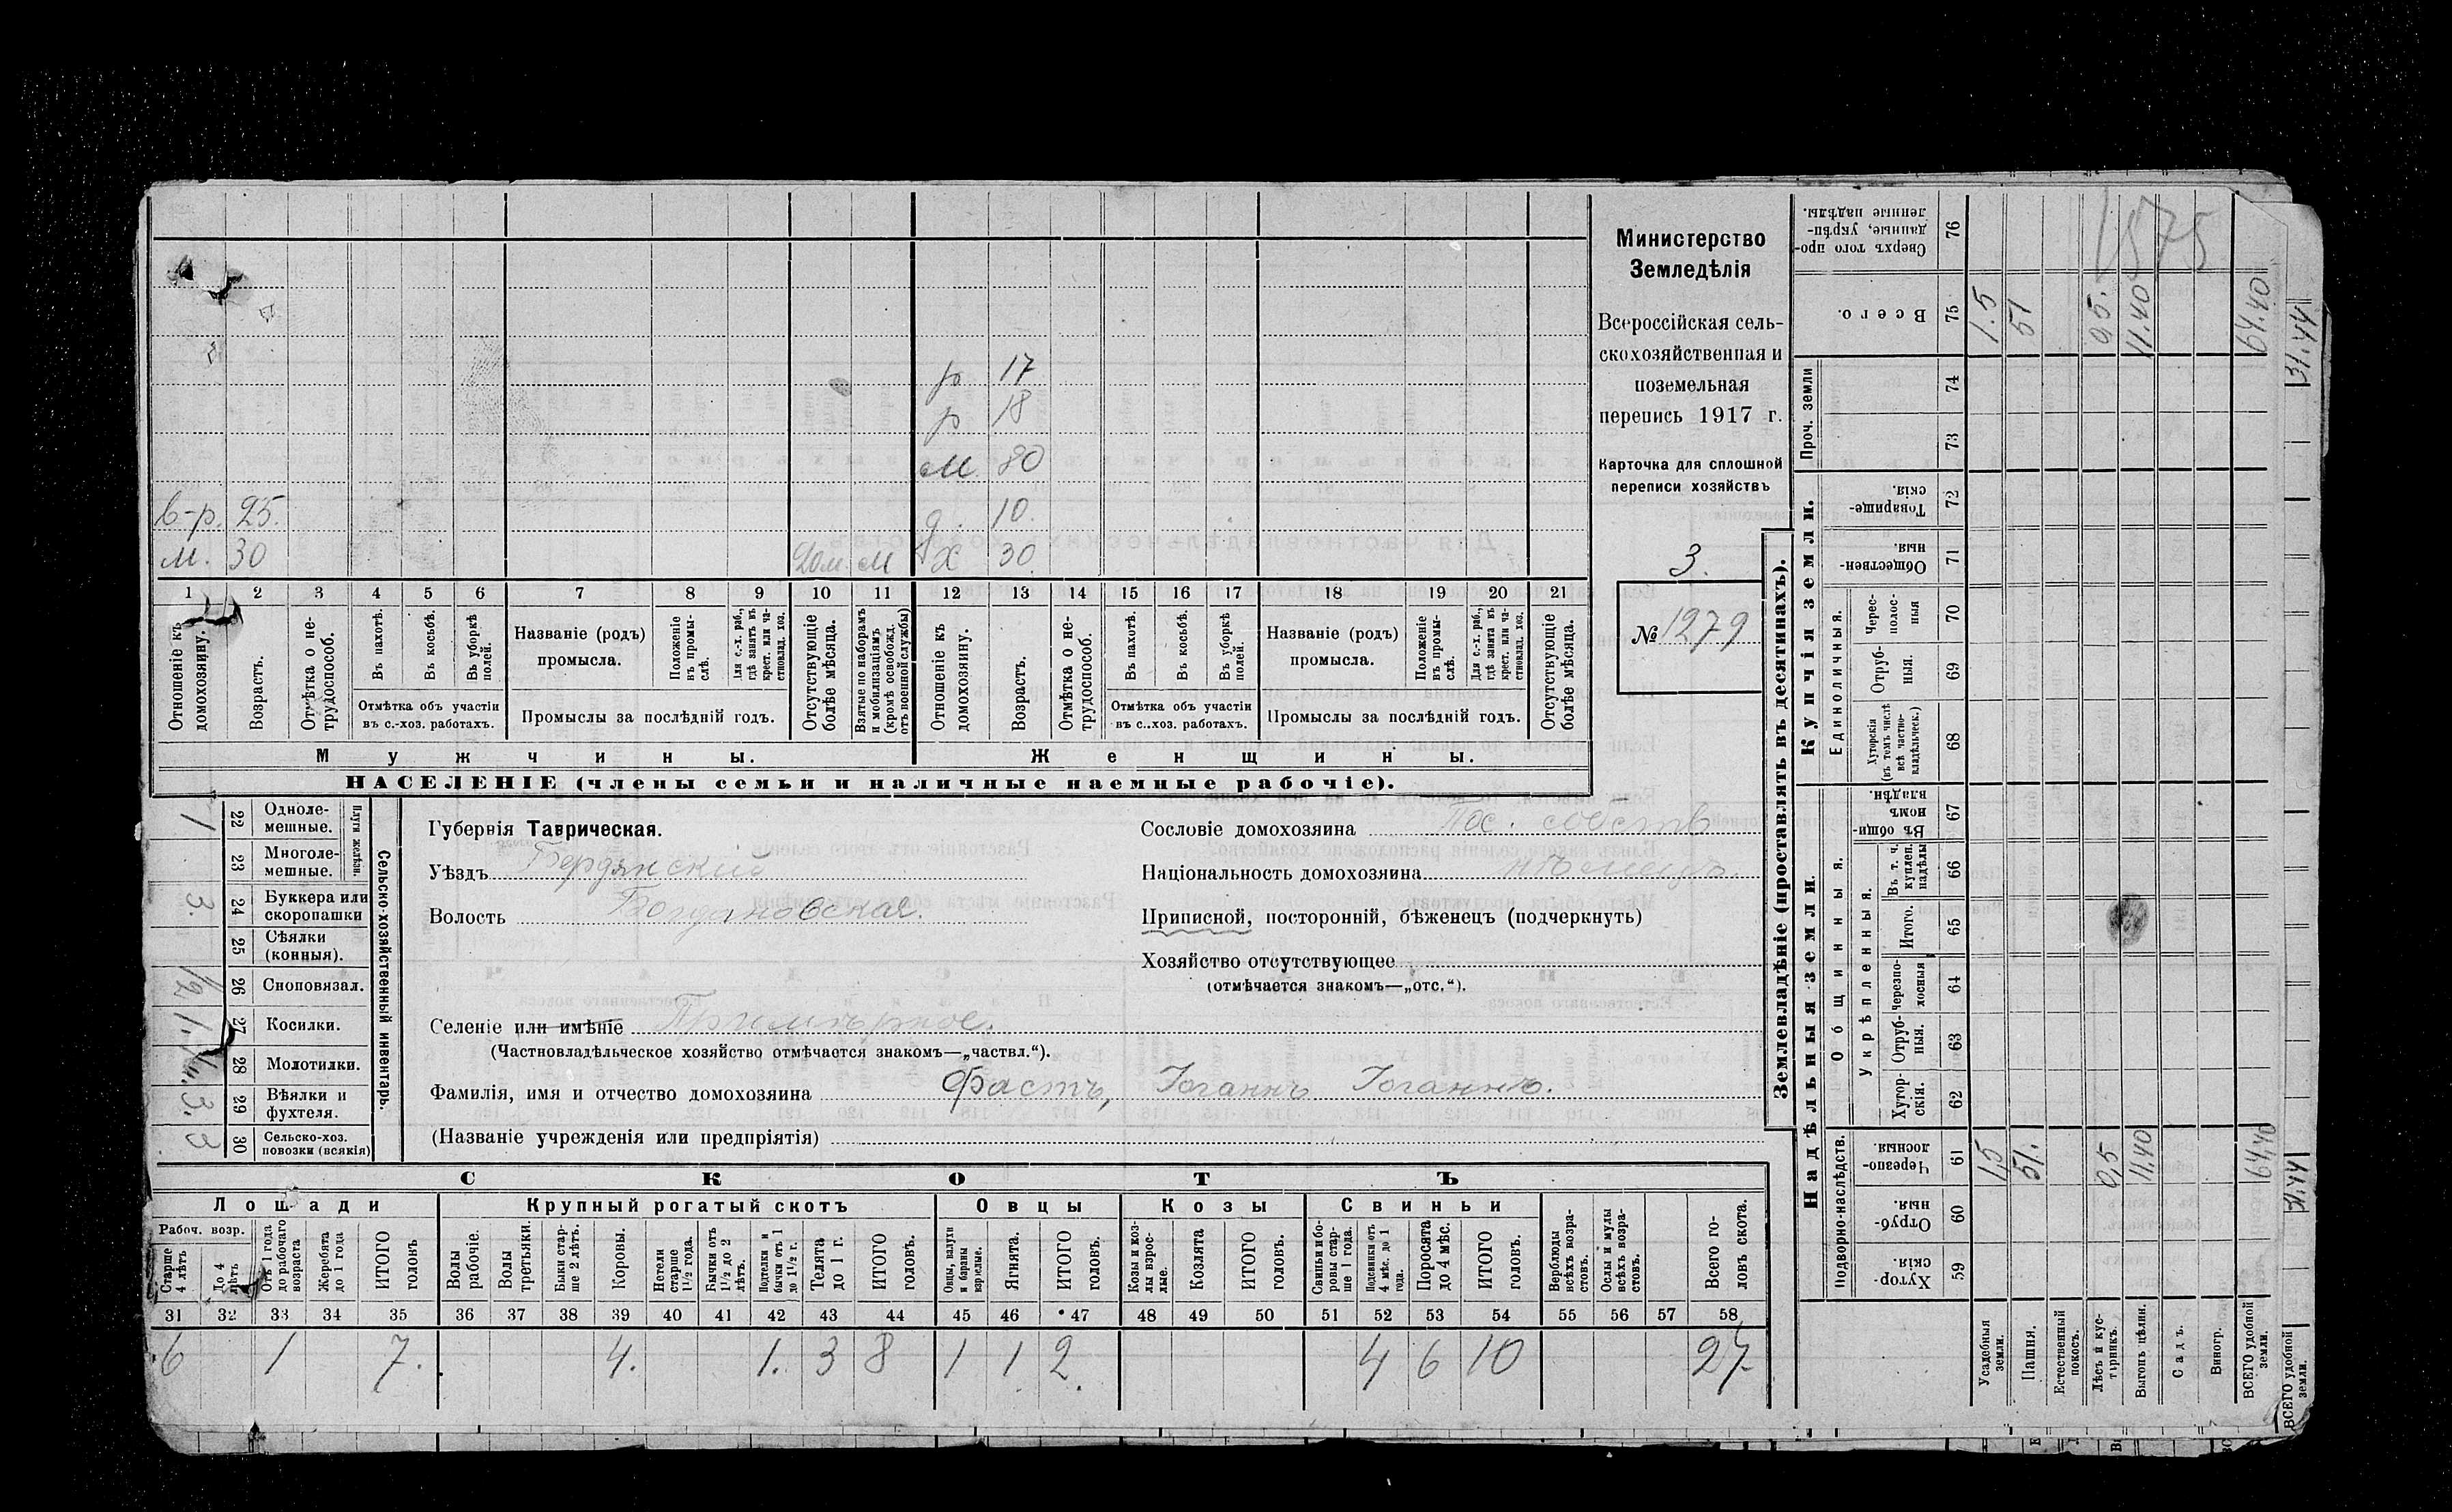 р 17
р 18
м. 80
в-р. 25. д. 10.
м. 30 20 м. м х 30
1 2 3 4 5 6 7 8 9 10 11 12 13 14 15 16 17 18 19 20 21
Отношеніе къ домохозяину.
Возрастъ.
Отмѣтка о нетрудоспособ.
Въ пахотѣ.
Въ косьбѣ.
Въ уборкѣ полей.
Отмѣтка объ участіи
въ с.-хоз. работахъ.
Названіе (родъ)
промысла.
Положеніе въ промыслѣ.
Для с.-х. раб., гдѣ занятъ въ крест. или частновлад. хоз.
Промыслы за послѣдній годъ.
Отсутствующіе болѣе мѣсяца.
Взятые по наборамъ и мобилизаціямъ (кромѣ освобожд. отъ военной службы)
Отношеніе къ домохозяину.
Возрастъ.
Отмѣтка о нетрудоспособ.
Въ пахотѣ.
Въ косьбѣ.
Въ уборкѣ полей.
Отмѣтка объ участіи
въ с.-хоз. работахъ.
Названіе (родъ)
промысла.
Положеніе въ промыслѣ.
Для с.-х. раб., гдѣ занята въ крест. или частновлад. хоз.
Промыслы за послѣдній годъ.
Отсутствующіе болѣе мѣсяца.
Мужчины. Женщины.
НАСЕЛЕНІЕ (члены семьи и наличные наемные рабочіе).
Министерство
Земледѣлія
Всероссійская сель-
скохозяйственная и
поземельная
перепись 1917 г.
Карточка для сплошной
переписи хозяйствъ
3.
№ 1279
Сельско-хозяйственный инвентарь.
Плуги желѣзн.
1 22 Одноле-
мешные.
23 Многоле-
мешные.
3. 24 Буккера или
скоропашки
25 Сѣялки
(конныя).
1/2 26 Сноповязал.
1. 27 Косилки.
1/4. 28 Молотилки.
3. 29 Вѣялки и
фухтеля.
3 30 Сельско-хоз.
повозки (всякія)
Губернія Таврическая.
Уѣздъ Бердянскій
Волость Богдановская.
Сословіе домохозяина Пос. собств
Національность домохозяина нѣмецъ.
Приписной, посторонній, бѣженецъ (подчеркнуть)
Хозяйство отсутствующее
(отмѣчается знакомъ—„отс.“).
Селеніе или имѣніе Примѣрное.
(Частновладѣльческое хозяйство отмѣчается знакомъ—„частвл.“).
Фамилія, имя и отчество домохозяина Фастъ, Іоганнъ Іоганно.
(Названіе учрежденія или предпріятія)
СКОТЪ
Лошади Крупный рогатый скотъ Овцы Козы Свиньи
Рабоч. возр.
Старше 4 лѣтъ
До 4 лѣтъ
Отъ 1 года до рабочаго возраста
Жеребята до 1 года
ИТОГО головъ
Волы рабочіе.
Волы третьяки.
Быки старше 2 лѣтъ.
Коровы.
Нетели старше 1½ года.
Бычки отъ 1½ до 2 лѣтъ.
Подтелки и бычки отъ 1 до 1½ г.
Телята до 1 г.
ИТОГО головъ.
Овцы, валухи и бараны взрослые.
Ягнята.
ИТОГО головъ.
Козы и козлы взрослые.
Козлята
ИТОГО головъ.
Свиньи и боровы старше 1 года.
Подсвинки отъ 4 мѣс. до 1 года.
Поросята до 4 мѣс.
ИТОГО головъ.
Верблюды всѣхъ возрастовъ.
Ослы и мулы всѣхъ возрастовъ.
Всего головъ скота.
31 32 33 34 35 36 37 38 39 40 41 42 43 44 45 46 47 48 49 50 51 52 53 54 55 56 57 58
6 1 7. 4. 1. 3 8 1 1 2. 4 6 10 27.
Землевладѣніе (проставлять въ десятинахъ).
Надѣльныя земли. Купчія земли.
Подворно-наслѣдств. Общинныя. Единоличныя. Проч. земли
Укрѣпленныя.
59 Хуторскія.
60 Отрубныя.
61 Черезполосныя
62 Хуторскія.
63 Отрубныя.
64 Черезполосныя
65 Итого.
66 Въ т. ч. куплен. надѣлы
67 Въ общинномъ владѣн.
68 Хуторскія (въ томъ числѣ всѣ частновладѣльческ.)
69 Отрубныя.
70 Чересполосныя
71 Общественныя
72 Товарищескія.
73
74
75 Всего.
76 Сверхъ того проданные, укрѣпленные надѣлы.
1575
Усадебныя земли. 1,5 1.5
Пашня. 51. 51
Естественный покосъ.
Лѣсъ и кустарникъ. 0,5 0,5.
Выгонъ цѣлин. 11,40 11.40
Садъ.
Виногр.
ВСЕГО удобной земли. 64,40 64.40
ВСЕГО удобной земли. 31,44 31.44